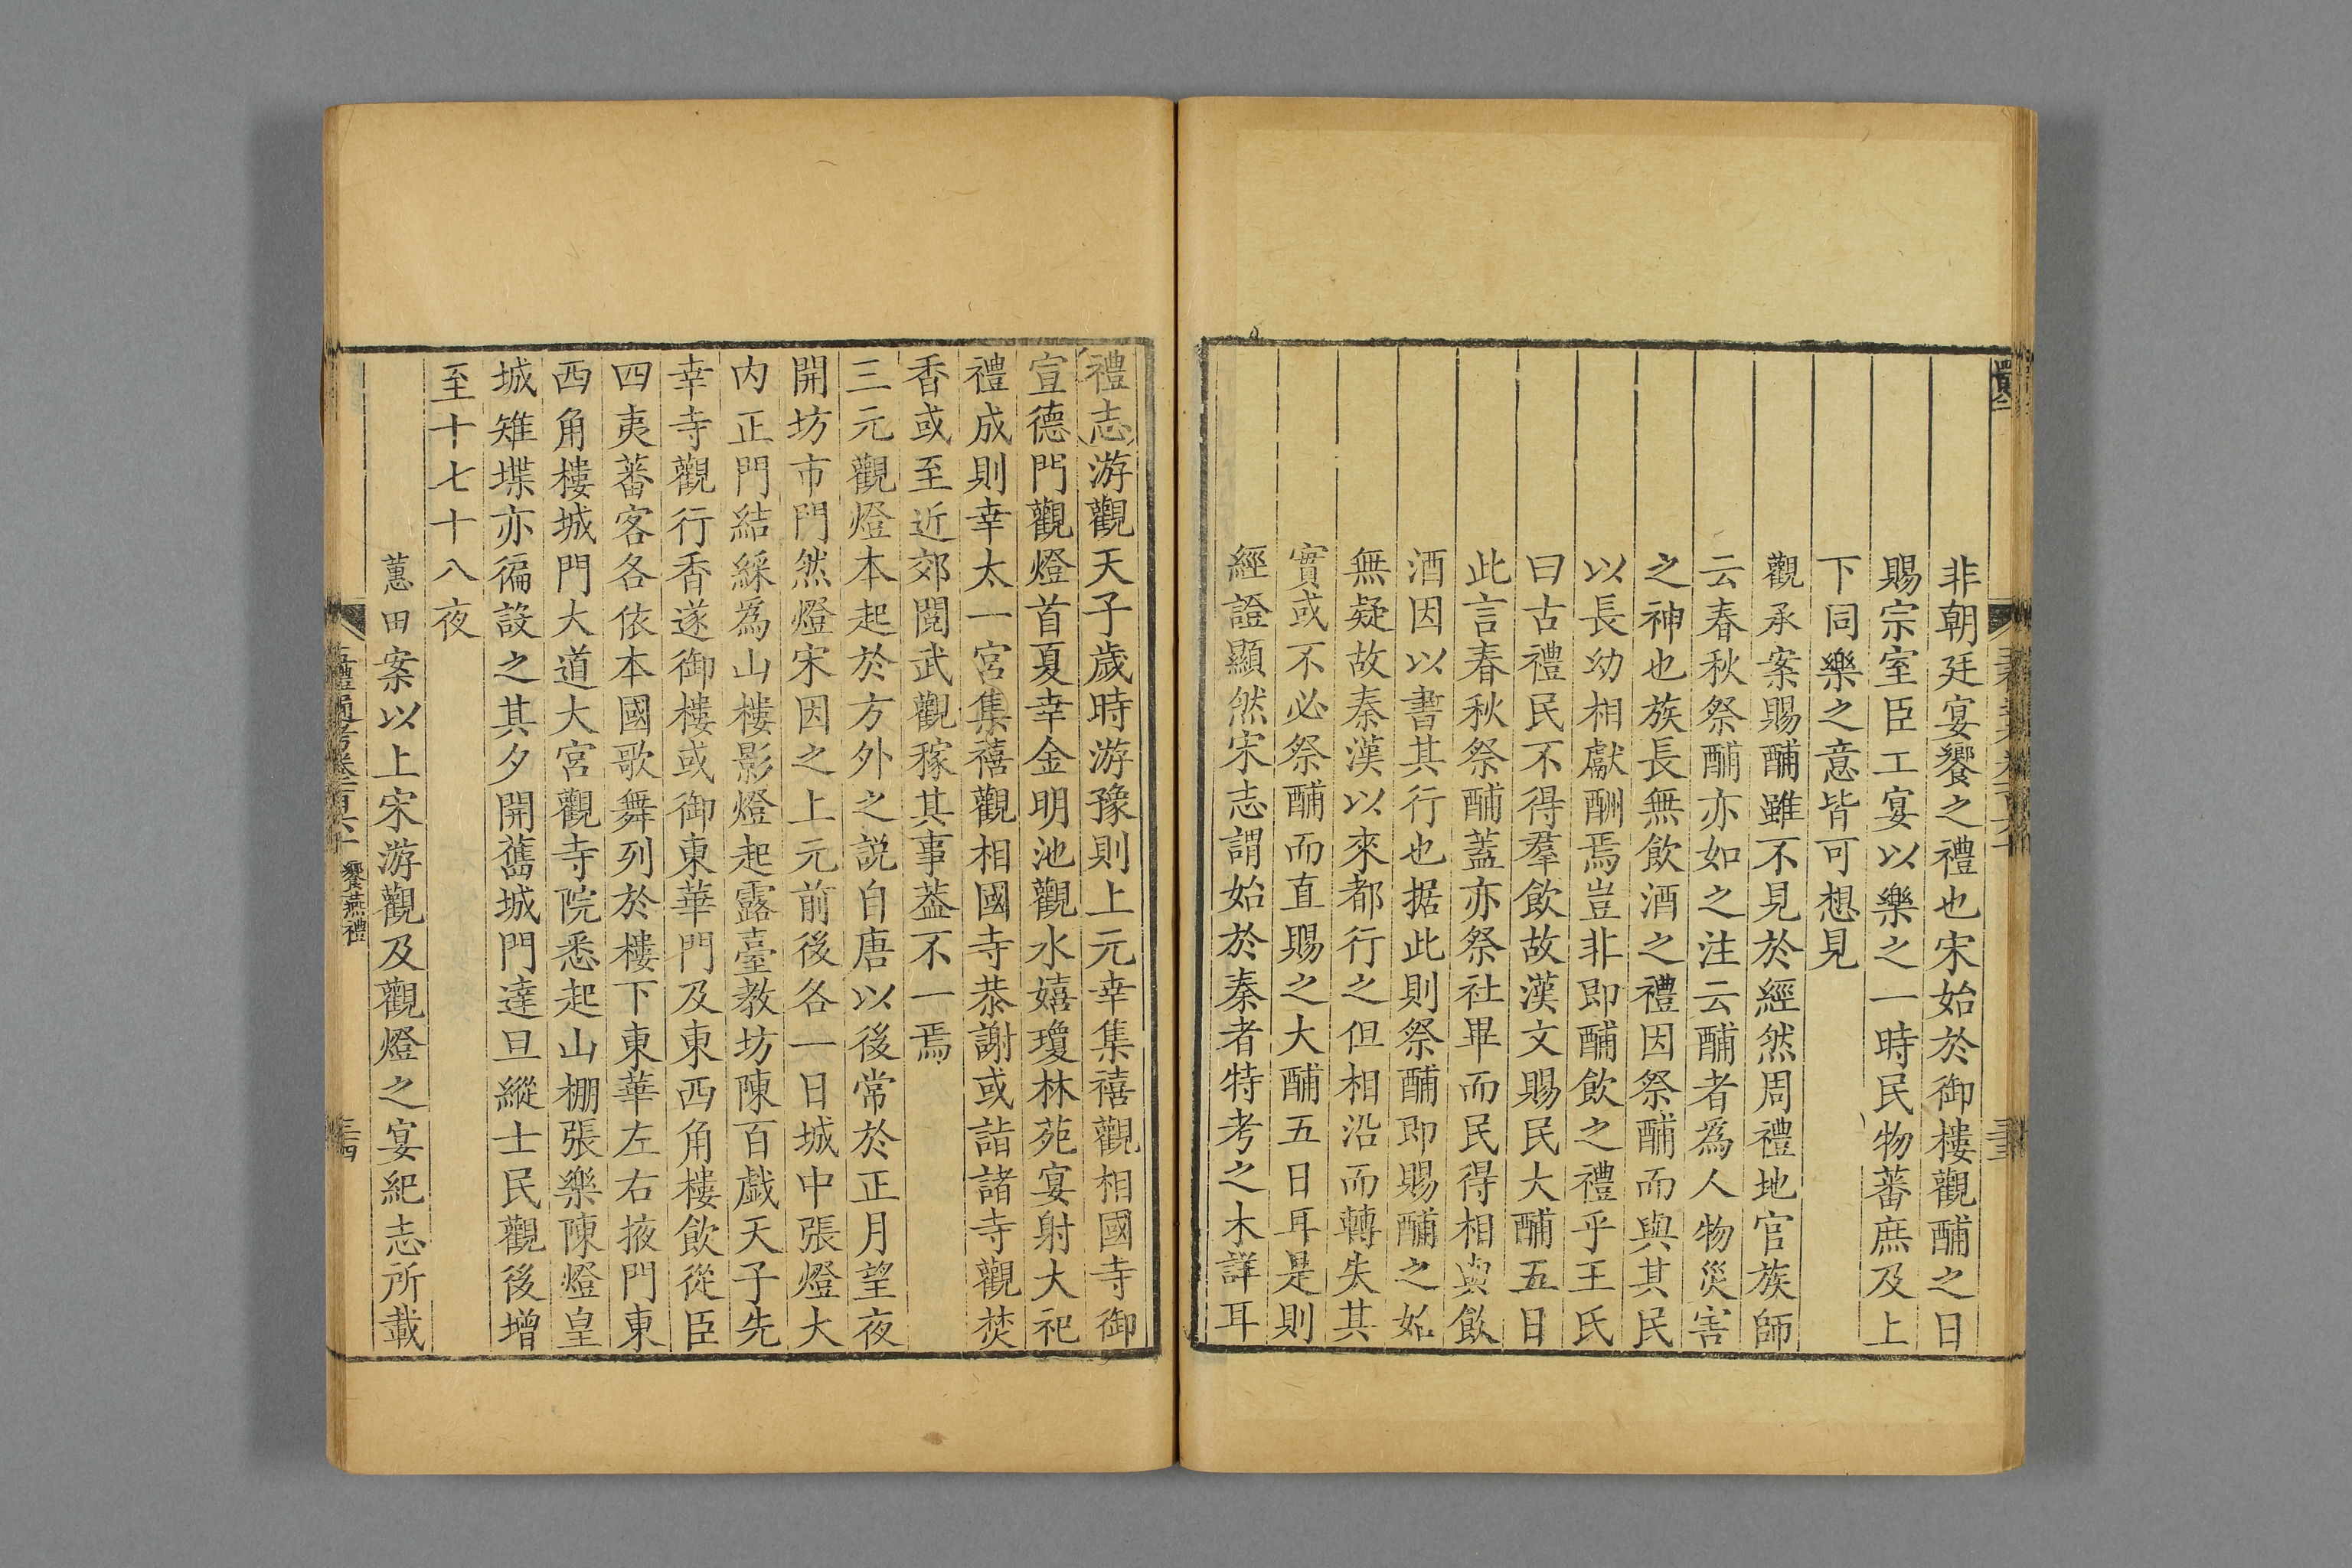 非朝廷宴饗之禮也宋始於御樓觀酺之日
賜宗室臣工宴以樂之一時民物蕃庶及上
下同樂之意皆可想見
觀承案賜酺雖不見於經然周禮地官族師
云春秋祭酺亦如之注云酺者爲人物災害
之神也族長無飲酒之禮因祭酺而與其民
以長幼相獻酬焉豈非即酺飲之禮乎王氏
曰古禮民不得羣飲故漢文賜民大酺五日
此言春秋祭酺蓋亦祭社畢而民得相與飲
酒因以書其行也据此則祭酺即賜酺之始
無疑故秦漢以來都行之但相沿而轉失其
實或不必祭酺而直賜之大酺五日耳是則
經證顯然宋志謂始於秦者特考之未詳耳
禮志游觀天子歲時游豫則上元幸集禧觀相國寺御
宣德門觀燈首夏幸金明池觀水嬉瓊林苑宴射大祀
禮成則幸太一宮集禧觀相國寺恭謝或詣諸寺觀焚
香或至近郊閲武觀稼其事葢不一焉
三元觀燈本起於方外之説自唐以後常於正月望夜
開坊市門然燈宋因之上元前後各一日城中張燈大
内正門結綵爲山樓影燈起露臺教坊陳百戲天子先
幸寺觀行香遂御樓或御東華門及東西角樓飲從臣
四夷蕃客各依本國歌舞列於樓下東華左右掖門東
西角樓城門大道大宮觀寺院悉起山棚張樂陳燈皇
城雉堞亦徧設之其夕開舊城門達旦縱士民觀後增
至十七十八夜
蕙田案以上宋游觀及觀燈之宴紀志所載
五禮通考卷一百六十 饗燕禮 三四